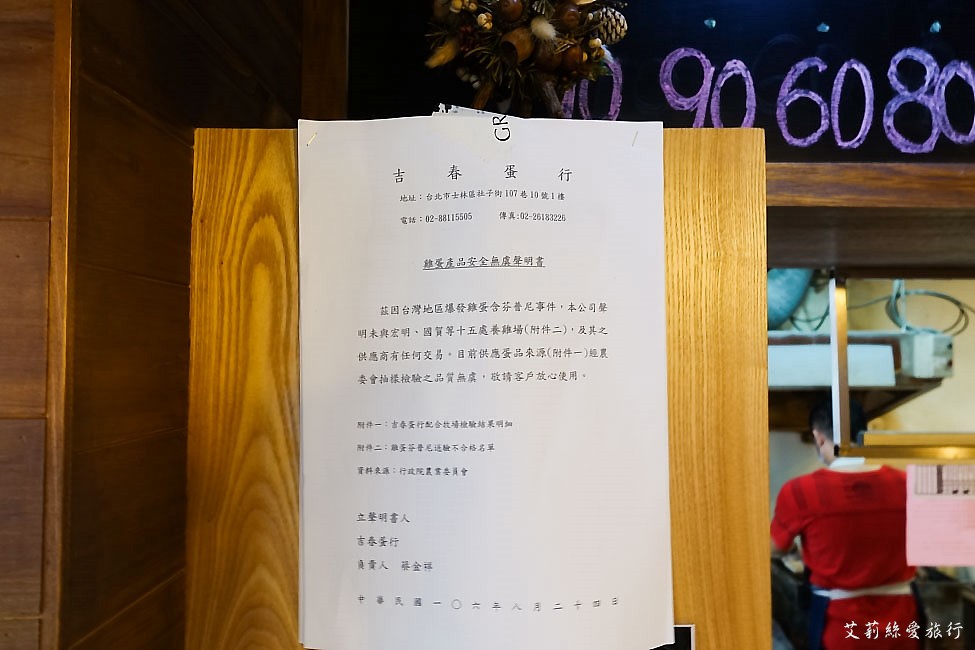 90 60 80
GR
吉春蛋行
地址：台北市士林區社子街107巷10號1樓
電話：02-88115505 傳真:02-26183226
雞蛋產品安全無虞聲明書
茲因台灣地區爆發雞蛋含芬普尼事件，本公司聲
明未與宏明、國賀等十五處養雞場(附件二)，及其之
供應商有任何交易。目前供應蛋品來源(附件一)經農
委會抽樣檢驗之品質無虞，敬請客戶放心使用。
附件一：吉春蛋行配合牧場檢驗結果明細
附件二：雞蛋芬普尼送驗不合格名單
資料來源：行政院農業委員會
立聲明書人
吉春蛋行
負責人 蔡金祥
中華民國一〇六年八月二十四日
艾莉絲愛旅行